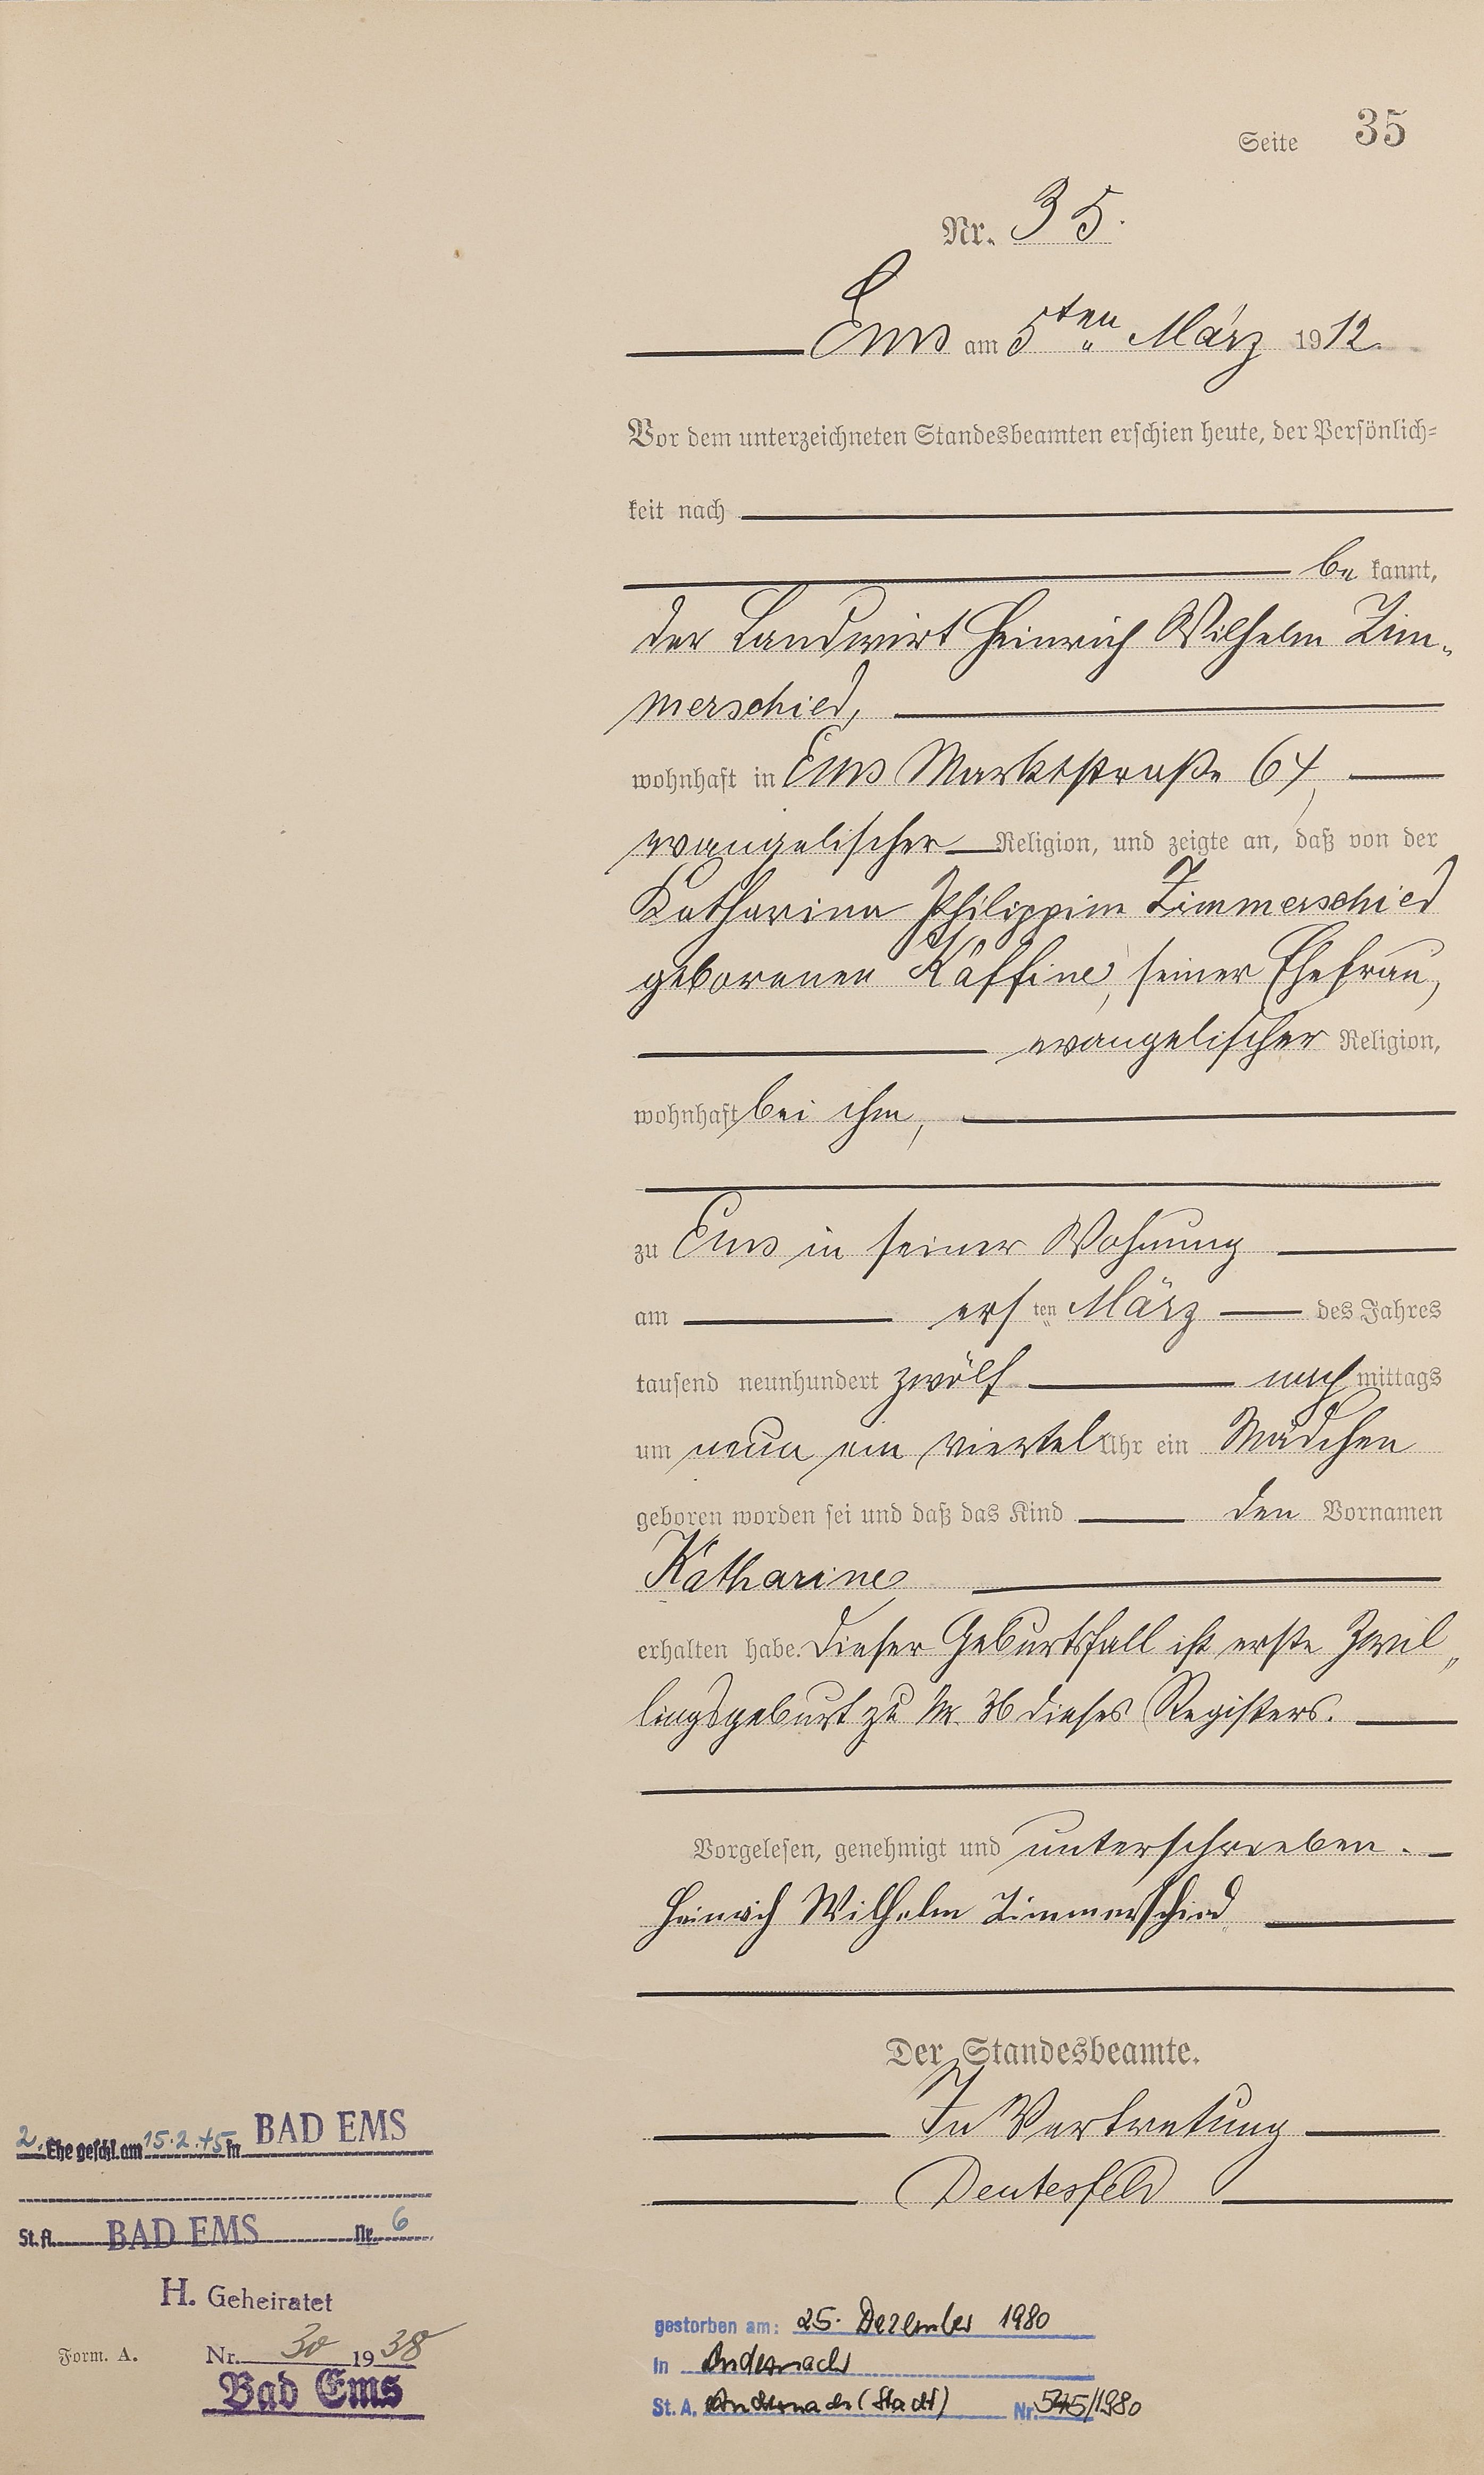 Seite 35
Nr. 35.
Ems am 5ten März 1912.
Vor dem unterzeichneten Standesbeamten erschien heute, der Persönlich-
keit nach
be kannt,
der Landwirt Heinrich Wilhelm Zim-
merschied,
wohnhaft in Ems Marktstraße 64,
evangelischer Religion, und zeigte an, daß von der
Katharina Philippine Zimmerschied
geborenen Käffine, seiner Ehefrau,
evangelischer Religion,
wohnhaft bei ihm,
zu Ems in seiner Wohnung
am ersten März des Jahres
tausend neunhundert zwölf nachmittags
um neun ein viertel Uhr ein Mädchen
geboren worden sei und daß das Kind den Vornamen
Katharine
erhalten habe. Dieser Geburtsfall ist erste Zwil-
lingsgeburt zu Nr. 36 dieses Registers.
Vorgelesen, genehmigt und unterschrieben.
Heinrich Wilhelm Zimmerschied
Der Standesbeamte.
In Vertretung
Deutesfeld
2. Ehe geschl. am 15.2.45 in BAD EMS
St.A. BAD EMS Nr. 6
H. Geheiratet
Form. A. Nr. 30 1938
Bad Ems
gestorben am: 25. Dezember 1980
in Andernach
St. A. Andernach (Stadt) Nr. 545/1980